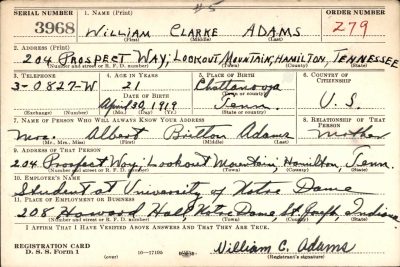 #5
SERIAL NUMBER 1. NAME (Print) ORDER NUMBER
3968 WILLIAM CLARKE ADAMS 279
(First) (Middle) (Last)
2. ADDRESS (Print)
204 PROSPECT WAY, LOOKOUT MOUNTAIN, HAMILTON, TENNESSEE
(Number and street or R. F. D. number) (Town) (County) (State)
3. TELEPHONE 4. AGE IN YEARS 5. PLACE OF BIRTH 6. COUNTRY OF CITIZENSHIP
3-0827-W 21 Chattanooga
DATE OF BIRTH (Town or county)
April 30, 1919 Tenn. U. S.
(Exchange) (Number) (Mo.) (Day) (Yr.) (State or country)
7. NAME OF PERSON WHO WILL ALWAYS KNOW YOUR ADDRESS 8. RELATIONSHIP OF THAT PERSON
Mrs. Albert Britton Adams Mother
(Mr., Mrs., Miss) (First) (Middle) (Last)
9. ADDRESS OF THAT PERSON
204 Prospect Way, Lookout Mountain, Hamilton, Tenn.
(Number and street or R. F. D. number) (Town) (County) (State)
10. EMPLOYER'S NAME
Student at University of Notre Dame
11. PLACE OF EMPLOYMENT OR BUSINESS
208 Howard Hall, Notre Dame, St. Joseph, Indiana
(Number and street or R. F. D. number) (Town) (County) (State)
I AFFIRM THAT I HAVE VERIFIED ABOVE ANSWERS AND THAT THEY ARE TRUE.
REGISTRATION CARD
D. S. S. Form 1 (over) 16—17105 William C. Adams
(Registrant's signature)